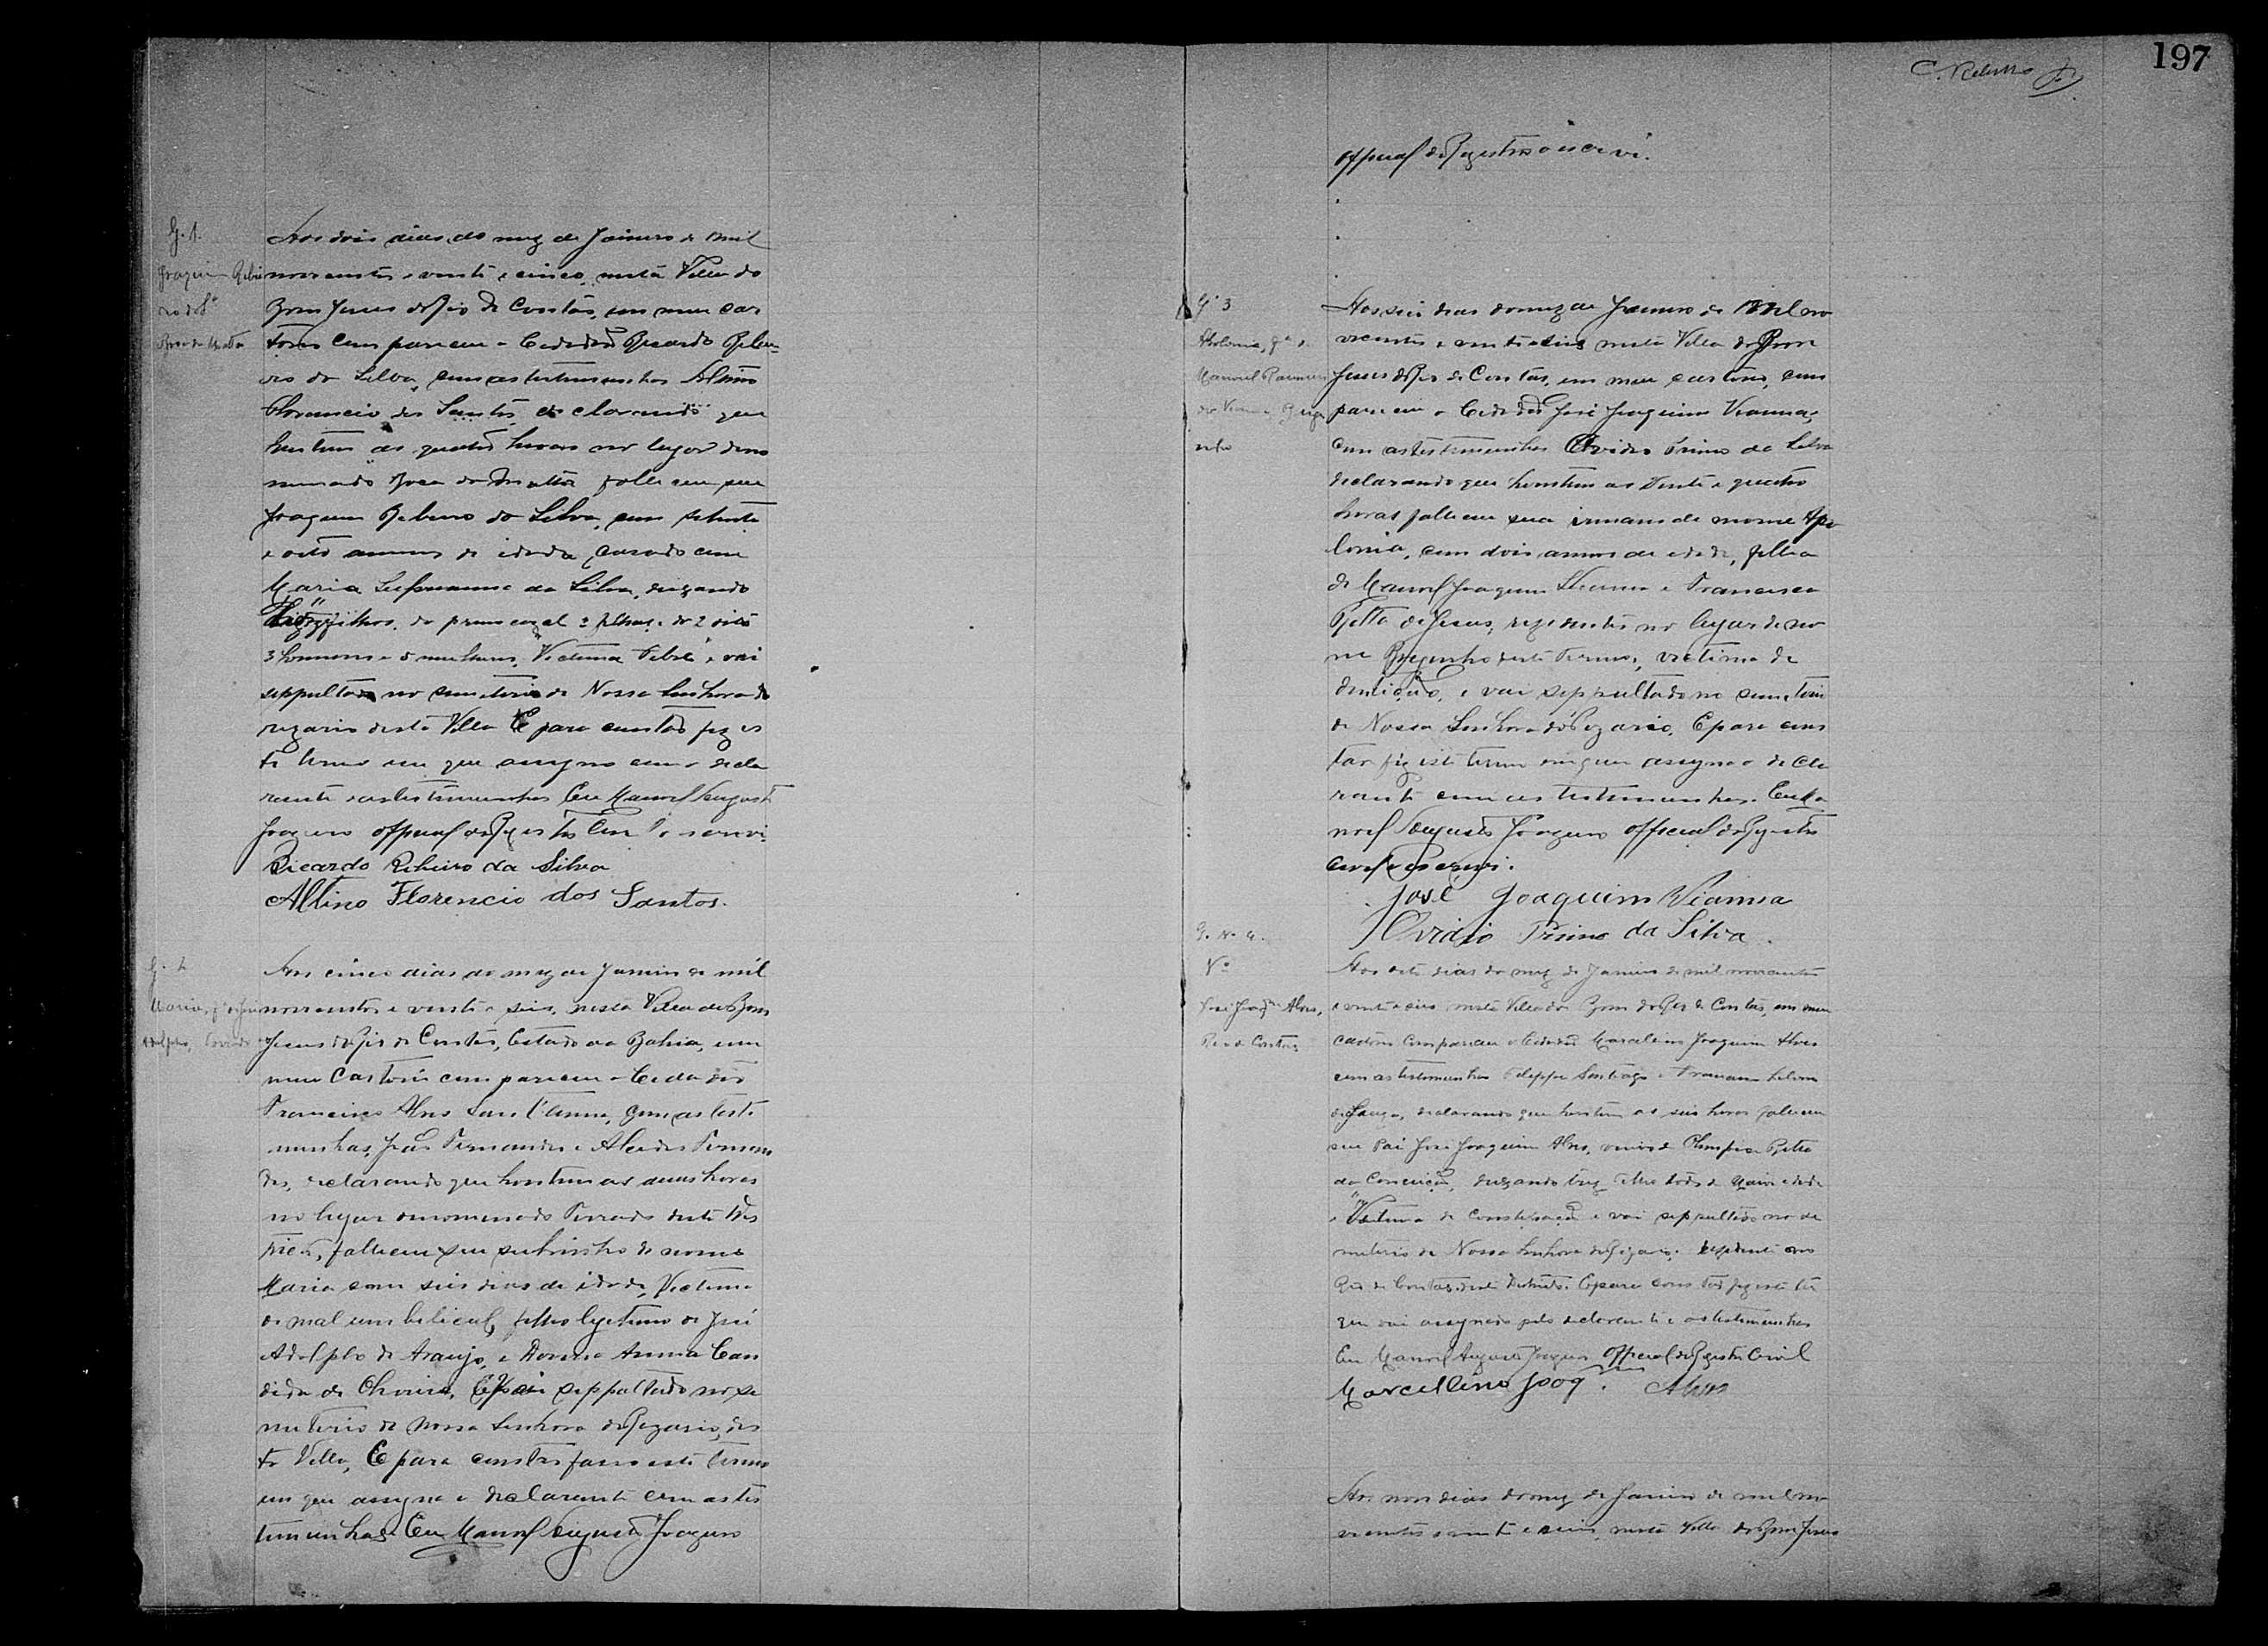 G. 1.
Joaquim Ribei
ro da S.ª
Boca da Matta
Aos dois dias do mez de Janeiro de mil
novecentos e vinte e cinco, nesta Villa do
Bom Jesus do Rio de Contas, em meu car
torio compareceu o Cidadão Ricardo Ribei
ro da Silva, com as testemunhas Altino
Florencio dos Santos, declarando que
hontem as quatro horas no lugar deno
minado Boca da Matta falleceu seu
Joaquim Ribeiro da Silva, com setenta
e oito annos de idade, casado com
Maria da Silva, deixando
filhos, do primeiro 2 filhos e do 2 oito
3 homens e 5 mulheres, Victima Febre e vai
seppultado no cemeterio de Nossa Senhora do
rozario desta Villa E para constar fiz es
te termo em que assigno com o decla
rante e as testemunhas Eu Manoel Augusto
Joaquim official do Registro Civil o escrevi.
Ricardo Ribeiro da Silva
Altino Florencio dos Santos.
G. 2
Maria, f.ª de José
Adolpho,
Aos cinco dias do mez de Janeiro de mil
novecentos e vinte e seis, nesta Villa do Bom
Jesus do Rio de Contas, Estado da Bahia, em
meu Cartorio compareceu o Cidadão
Francisco Alves Sant'Anna, com as teste
munhas, João Fernandes e Alcides Fernan
des, declarando que hontem as duas horas
no lugar denominado deste Dis
tricto, falleceu seu sobrinho de nome
Maria com seis dias de idade, Victima
de mal umbelical, filho legetimo de José
Adolpho de Araujo, e Donna Anna Can
dida de Oliveira, E vai seppultado no se
meterio de Nossa Senhora do Rozario, des
ta Villa, E para constar faço este termo
em que assigna o declarante com as tes
temunhas Eu Manoel Augusto Joaquim
197
official do Registro o escrevi.
G. 3
Apolonia, f.ª de
Manoel
Vianna,
Aos seis dias do mez de Janeiro de Mil no
vecentos e vinte e seis nesta Villa do Bom
Jesus do Rio de Contas, em meu cartorio, com
pareceu o Cidadão José Joaquim Vianna,
com as testemunhas Ovidio Primo da Silva
declarando que hontem as vinte e quatro
horas falleceu sua irman de nome Apo
lonia, com dois annos de idade, filha
de Manoel Joaquim Vianna e Francisca
Ritta de Jesus, rezidentes no lugar de no
me deste Termo, victima de
dentição, e vai seppultado no cemeterio
de Nossa Senhora do Rozario, E para cons
tar fiz este termo em que assigna o decla
rante com as testemunhas. Eu Ma
noel Augusto Joaquim official do Registro
Civil o escrevi.
José Joaquim Vianna
Ovidio Primo da Silva.
G. N. 4.
José Joaq.m Alves,
Rio de Contas
Aos oito dias do mez de Janeiro de mil novecentos
e vinte e seis nesta Villa do Bom do Rio de Contas, em meu
cartorio compareceu o Cidadão Marcelino Joaquim Alves
com as testemunhas Felippe Santiago e
de Souza, declarando que hontem as seis horas falleceu
seu Pai José Joaquim Alves, viuvo de Olimpia Ritta
da Conceição, deixando trez filhos todos de maior idade
e Victima de Constipação e vai seppultado no ce
meterio de Nossa Senhora do Rozario, rezidente no
Rio de Contas deste Districto. E para constar fiz este ter
que vai assignado pelo declarante e as testemunhas
Eu Manoel Augusto Joaquim Official do Registro Civil
Marcellino Joaq.m Alves
Aos nove dias do mez de Janeiro de mil no
vecentos e vinte e seis, nesta Villa do Bom Jesus